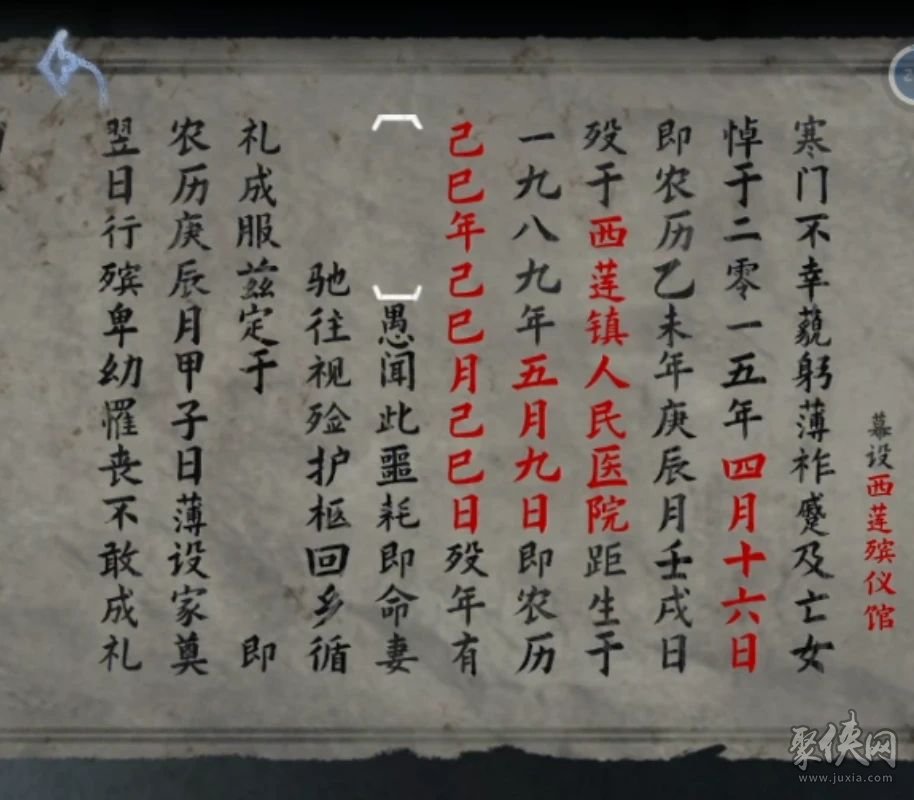 幕设西莲殡仪馆
寒门不幸藐躬薄祚蹙及亡女
悼于二零一五年四月十六日
即农历乙未年庚辰月壬戌日
殁于西莲镇人民医院距生于
一九八九年五月九日即农历
己巳年己巳月己巳日殁年有
愚闻此噩耗即命妻
驰往视殓护柩回乡循
礼成服兹定于 即
农历庚辰月甲子日薄设家奠
翌日行殡卑幼罹丧不敢成礼
聚侠网
www.juxia.com